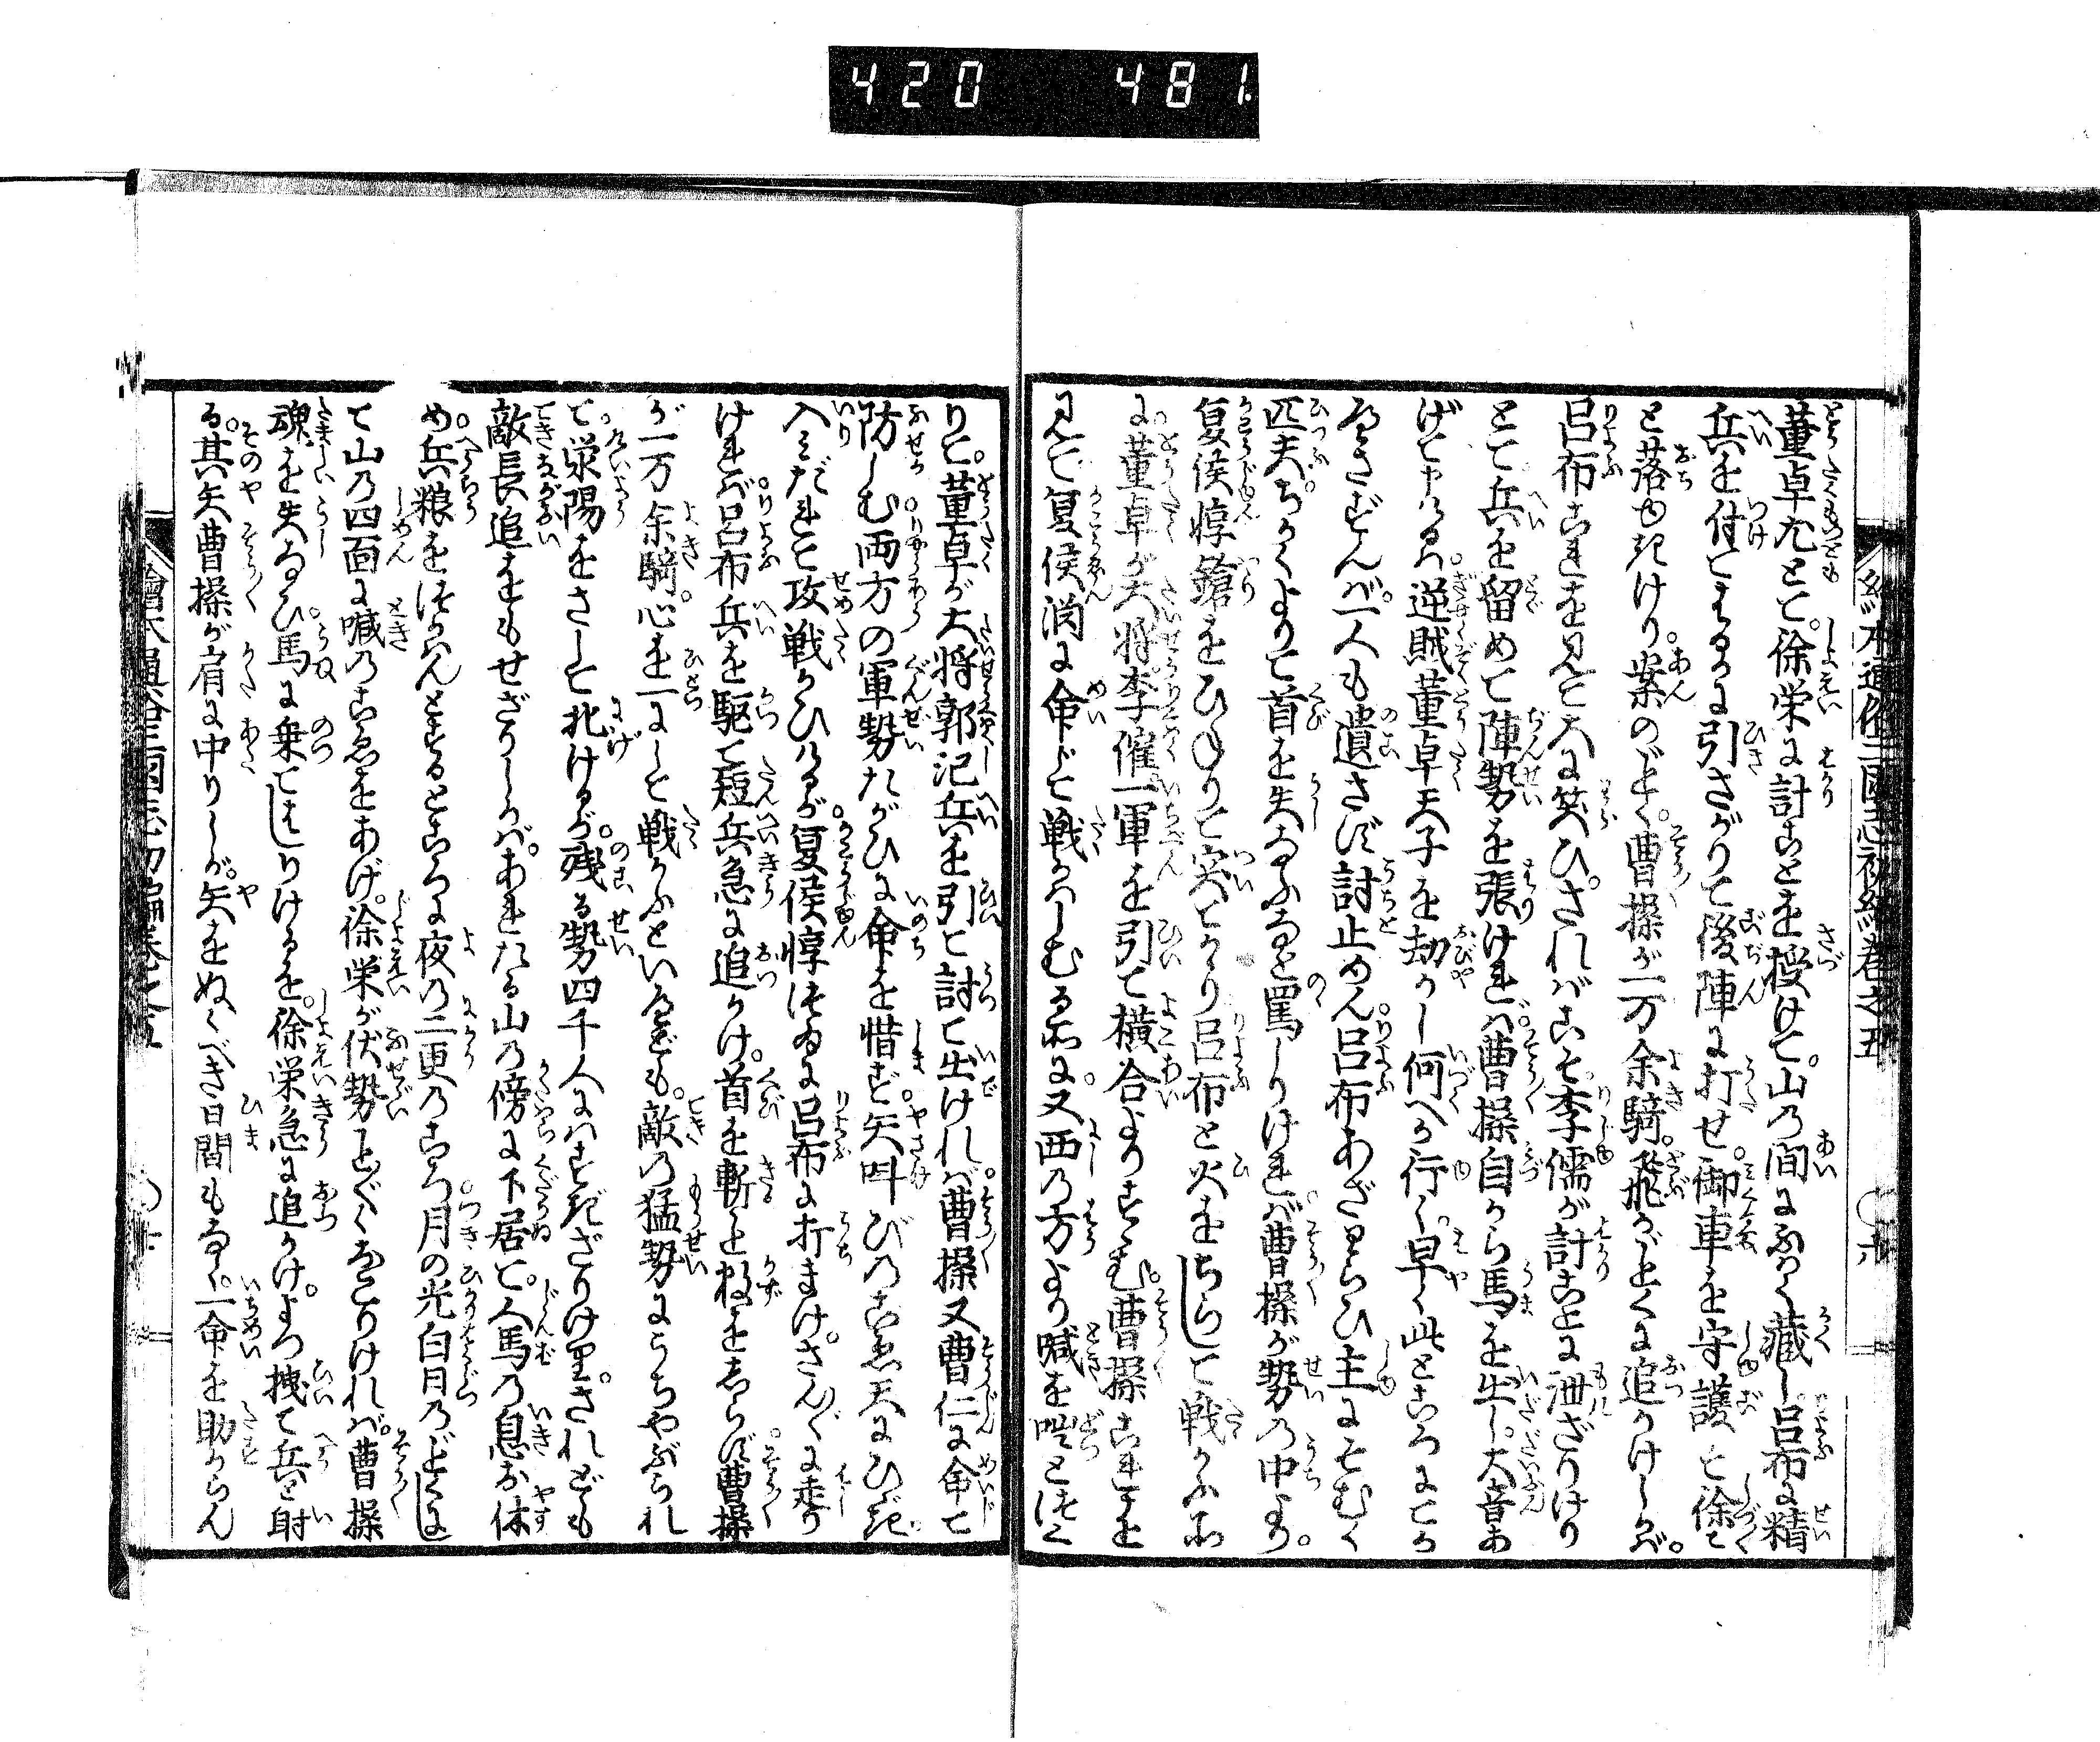 420 481
繪本通俗三國志初編卷之五
董卓尤とて。徐栄に計ことを授けて。山の間にふかく藏し呂布に精
兵を付てはるかに引さがりて後陣に打せ。御車を守護して徐々
と落ゆきけり。案のごとく。曹操が一万余騎飛がごとくに追かけしかば。
呂布これを見て大に笑ひ。さればこそ李儒が計ことに泄ざりけり
とて兵を留めて陣勢を張ければ。曹操自から馬を出し。大音あ
げて申けるハ。逆賊董卓天子を劫かし何へか行く。早く此ところにてか
へさずんば。一人も遺さず討止めん。呂布あざわらひ主にそむく
匹夫。ちかくよりて首を失ふなと罵しりければ。曹操が勢の中より。
夏侯惇鎗をひねりて突てかゝり呂布と火をちらして戦かふ所
に。董卓が大将李傕一軍を引て横合よりすゝむ。曹操これを
見て夏侯淵に命じて戦かハしむる所に。又西の方より喊を咄とつく
りて。董卓が大将郭汜兵を引て討て出けれバ。曹操又曹仁に命じて
防しむ。両方の軍勢たがひに命を惜まず。矢叫びのこゑ天にひゞき。
入みだれて攻戦かひけるが。夏侯惇つゐに呂布に打まけ。さんざんに走り
ければ。呂布兵を駆て短兵急に追かけ。首を斬こと数をしらず。曹操
が一万余騎。心を一にして戦かふといへども。敵の猛勢にうちやぶられ
て。滎陽をさして北けるが。残る勢四千人にハすぎざりけり。されども
敵長追をもせざりしかば。あれたる山の傍に下居て。人馬の息を休
め。兵粮をつかはんとするところに夜の二更のころ。月の光白日のごとくに
て山の四面に喊のこゑをあげ。徐栄が伏勢ことごとくおこりけれバ。曹操
魂を失なひ。馬に乗てはしりけるを。徐栄急に追かけ。よつ拽て兵と射
る。其矢曹操が肩に中りしが。矢をぬくべき日間もなく。一命を助からん
繪本通俗三國志初編卷之五